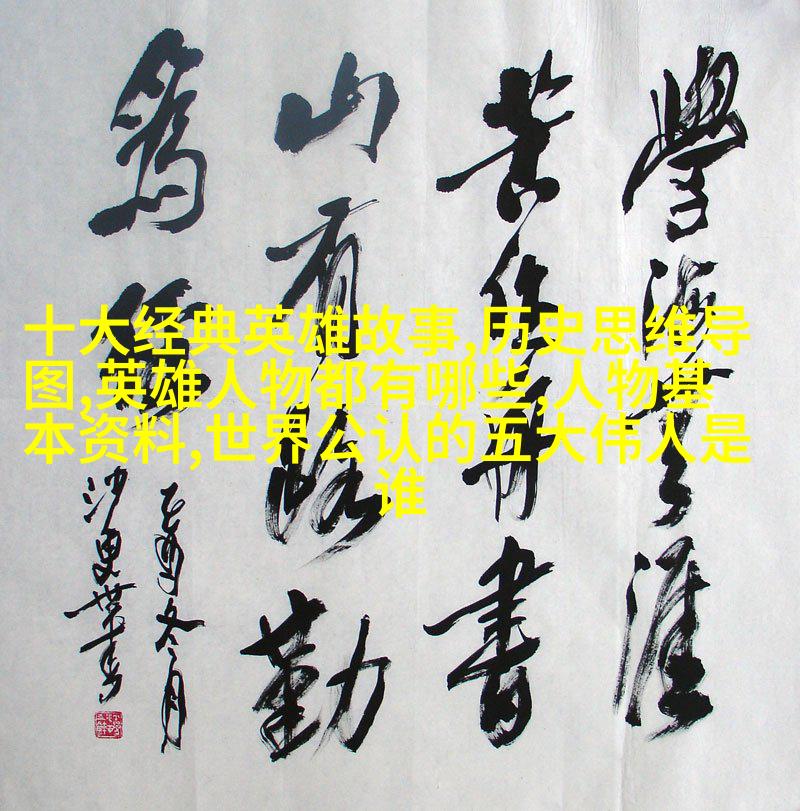 學海无涯
苦作舟書
山有路勤
為徑
乙酉冬月
十大经典英雄故事,历史思维导
图,英雄人物都有哪些,人物基
本资料,世界公认的五大伟人是
谁